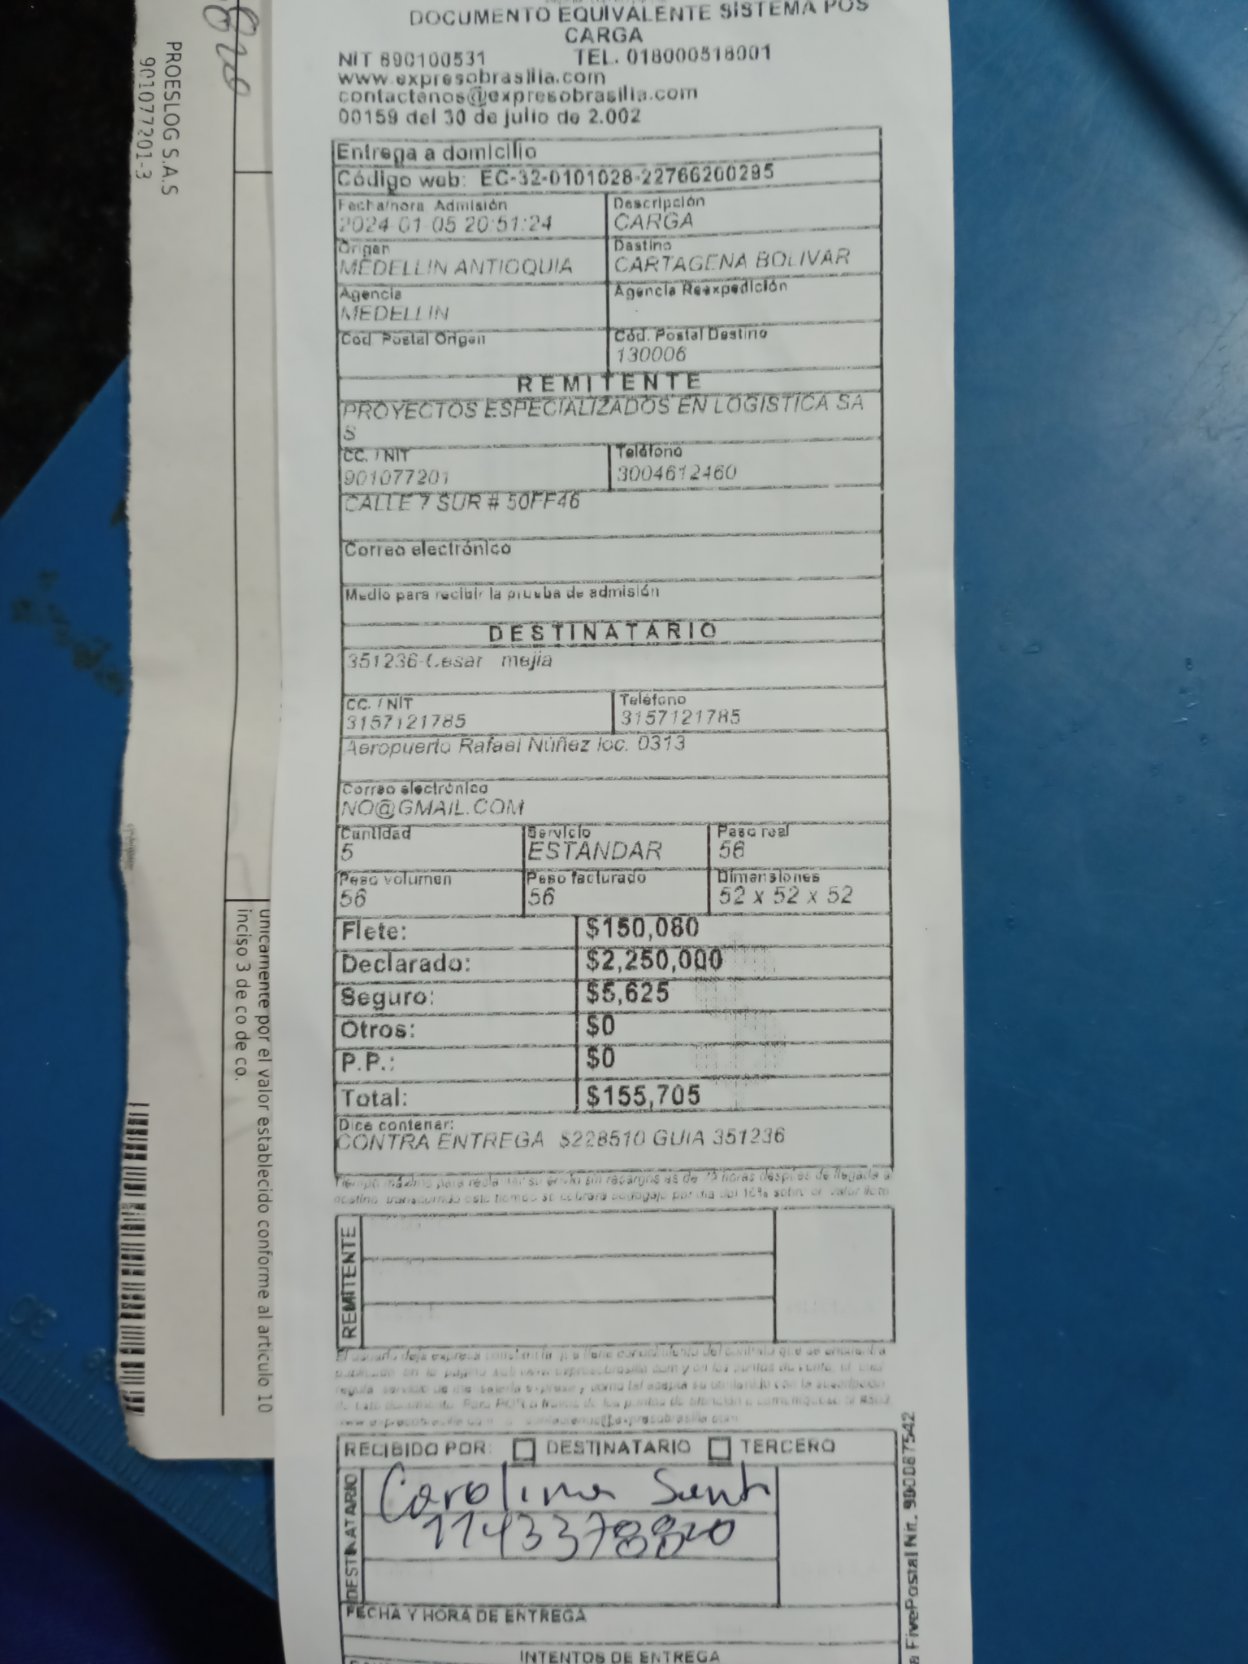 DOCUMENTO EQUIVALENTE SISTEMA POS
CARGA
NIT 890100531 TEL. 018000518001
www.expresobrasilia.com
contactenos@expresobrasilia.com
00159 del 30 de julio de 2.002
Entrega a domicilio
Código web: EC-32-0101028-22766200295
Fecha/hora Admisión Descripción
2024-01-05 20:51:24 CARGA
Origen Destino
MEDELLIN ANTIOQUIA CARTAGENA BOLIVAR
Agencia Agencia Reexpedición
MEDELLIN
Cód. Postal Origen Cód. Postal Destino
130006
REMITENTE
PROYECTOS ESPECIALIZADOS EN LOGISTICA SA
S
CC. / NIT Teléfono
901077201 3004612460
CALLE 7 SUR # 50FF46
Correo electrónico
Medio para recibir la prueba de admisión
DESTINATARIO
351236-Cesar mejia
CC. / NIT Teléfono
3157121785 3157121785
Aeropuerto Rafael Núñez loc. 0313
Correo electrónico
NO@GMAIL.COM
Cantidad Servicio Peso real
5 ESTANDAR 56
Peso volumen Peso facturado Dimensiones
56 56 52 x 52 x 52
Flete: $150,080
Declarado: $2,250,000
Seguro: $5,625
Otros: $0
P.P.: $0
Total: $155,705
Dice contener:
CONTRA ENTREGA $228510 GUIA 351236
REMITENTE
RECIBIDO POR: DESTINATARIO TERCERO
DESTINATARIO
Carolina
1143378820
FECHA Y HORA DE ENTREGA
INTENTOS DE ENTREGA
FivePostal Nit. 900087542
PROESLOG S.A.S
901077201-3
820
unicamente por el valor establecido conforme al articulo 10
inciso 3 de co de co.